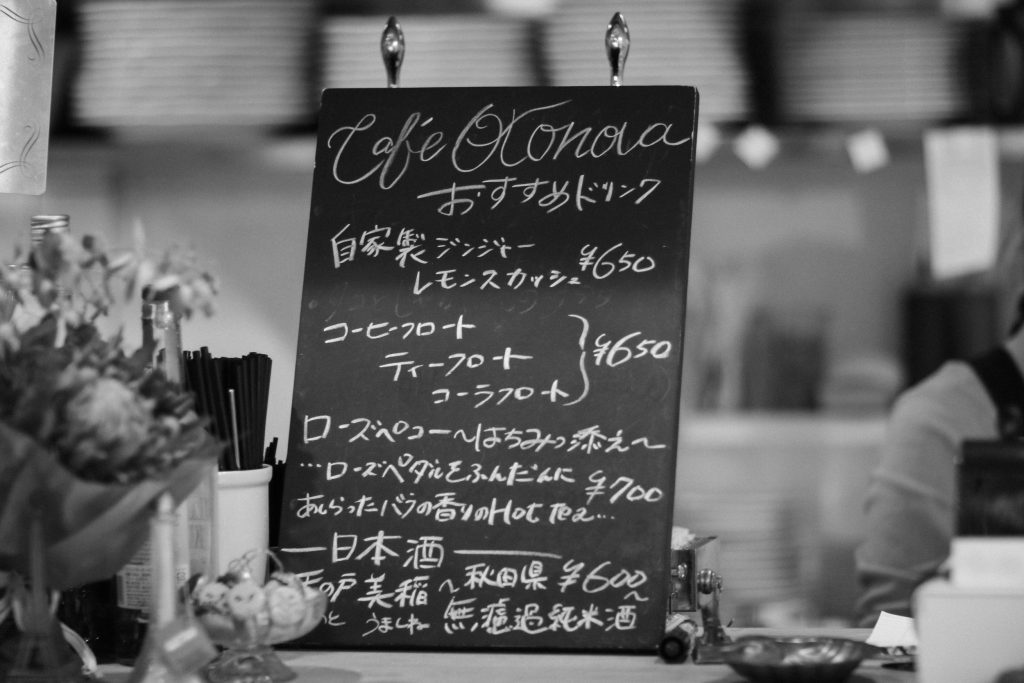 Café Otonova
おすすめドリンク
自家製ジンジャー
レモンスカッシュ ¥650
コーヒーフロート
ティーフロート ¥650
コーラフロート
ローズペコー〜はちみつ添え〜
…ローズペダルをふんだんに ¥700
あしらったバラの香りのHot tea…
日本酒
の戸 美稲 〜秋田県 ¥600〜
うましね 無濾過純米酒